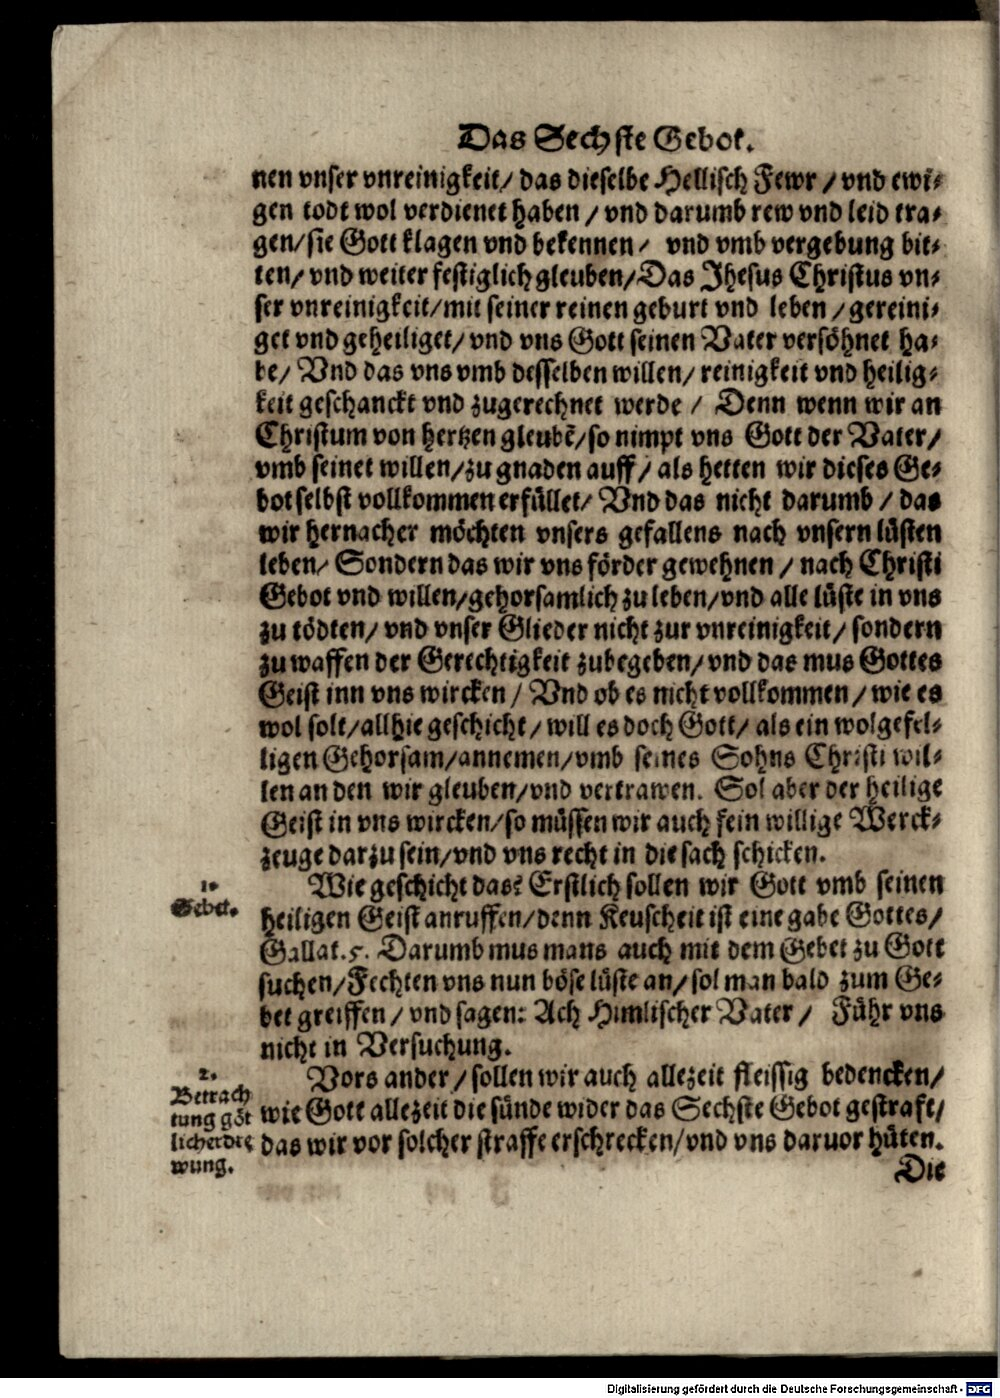 Das Sechste Gebot.
nen vnser vnreinigkeit/ das dieselbe Hellisch Fewr / vnd ewi-
gen todt wol verdienet haben / vnd darumb rew vnd leid tra-
gen/sie Gott klagen vnd bekennen/ vnd vmb vergebung bit-
ten/ vnd weiter festiglich gleuben/Das Jhesus Christus vn-
ser vnreinigkeit/mit seiner reinen geburt vnd leben / gereini-
get vnd geheiliget/ vnd vns Gott seinen Vater versöhnet ha-
be/ Vnd das vns vmb desselben willen/ reinigkeit vnd heilig-
keit geschanckt vnd zugerechnet werde / Denn wenn wir an
Christum von hertzen gleubē/so nimpt vns Gott der Vater/
vmb seinet willen/zu gnaden auff/ als hetten wir dieses Ge-
bot selbst vollkommen erfüllet/ Vnd das nicht darumb / das
wir hernacher möchten vnsers gefallens nach vnsern lüsten
leben/ Sondern das wir vns förder gewehnen / nach Christi
Gebot vnd willen/gehorsamlich zu leben/vnd alle lüste in vns
zu tödten/ vnd vnser Glieder nicht zur vnreinigkeit/ sondern
zu waffen der Gerechtigkeit zubegeben/vnd das mus Gottes
Geist inn vns wircken / Vnd ob es nicht vollkommen/ wie es
wol solt/allhie geschicht/ will es doch Gott/ als ein wolgefel-
ligen Gehorsam/annemen/vmb seines Sohns Christi wil-
len an den wir gleuben/vnd vertrawen. Sol aber der heilige
Geist in vns wircken/so müssen wir auch fein willige Werck-
zeuge darzu sein/vnd vns recht in die sach schicken.
1.
Gebet.
Wie geschicht das? Erstlich sollen wir Gott vmb seinen
heiligen Geist anruffen/denn Keuscheit ist eine gabe Gottes/
Gallat. 5. Darumb mus mans auch mit dem Gebet zu Gott
suchen/Fechten vns nun böse lüste an/ sol man bald zum Ge-
bet greiffen/ vnd sagen: Ach Himlischer Vater / Führ vns
nicht in Versuchung.
2.
Betrach
tung göt
licher dre
wung.
Vors ander / sollen wir auch allezeit fleissig bedencken/
wie Gott allezeit die sünde wider das Sechste Gebot gestraft/
das wir vor solcher straffe erschrecken/vnd vns daruor hüten.
Die
Digitalisierung gefördert durch die Deutsche Forschungsgemeinschaft - DFG